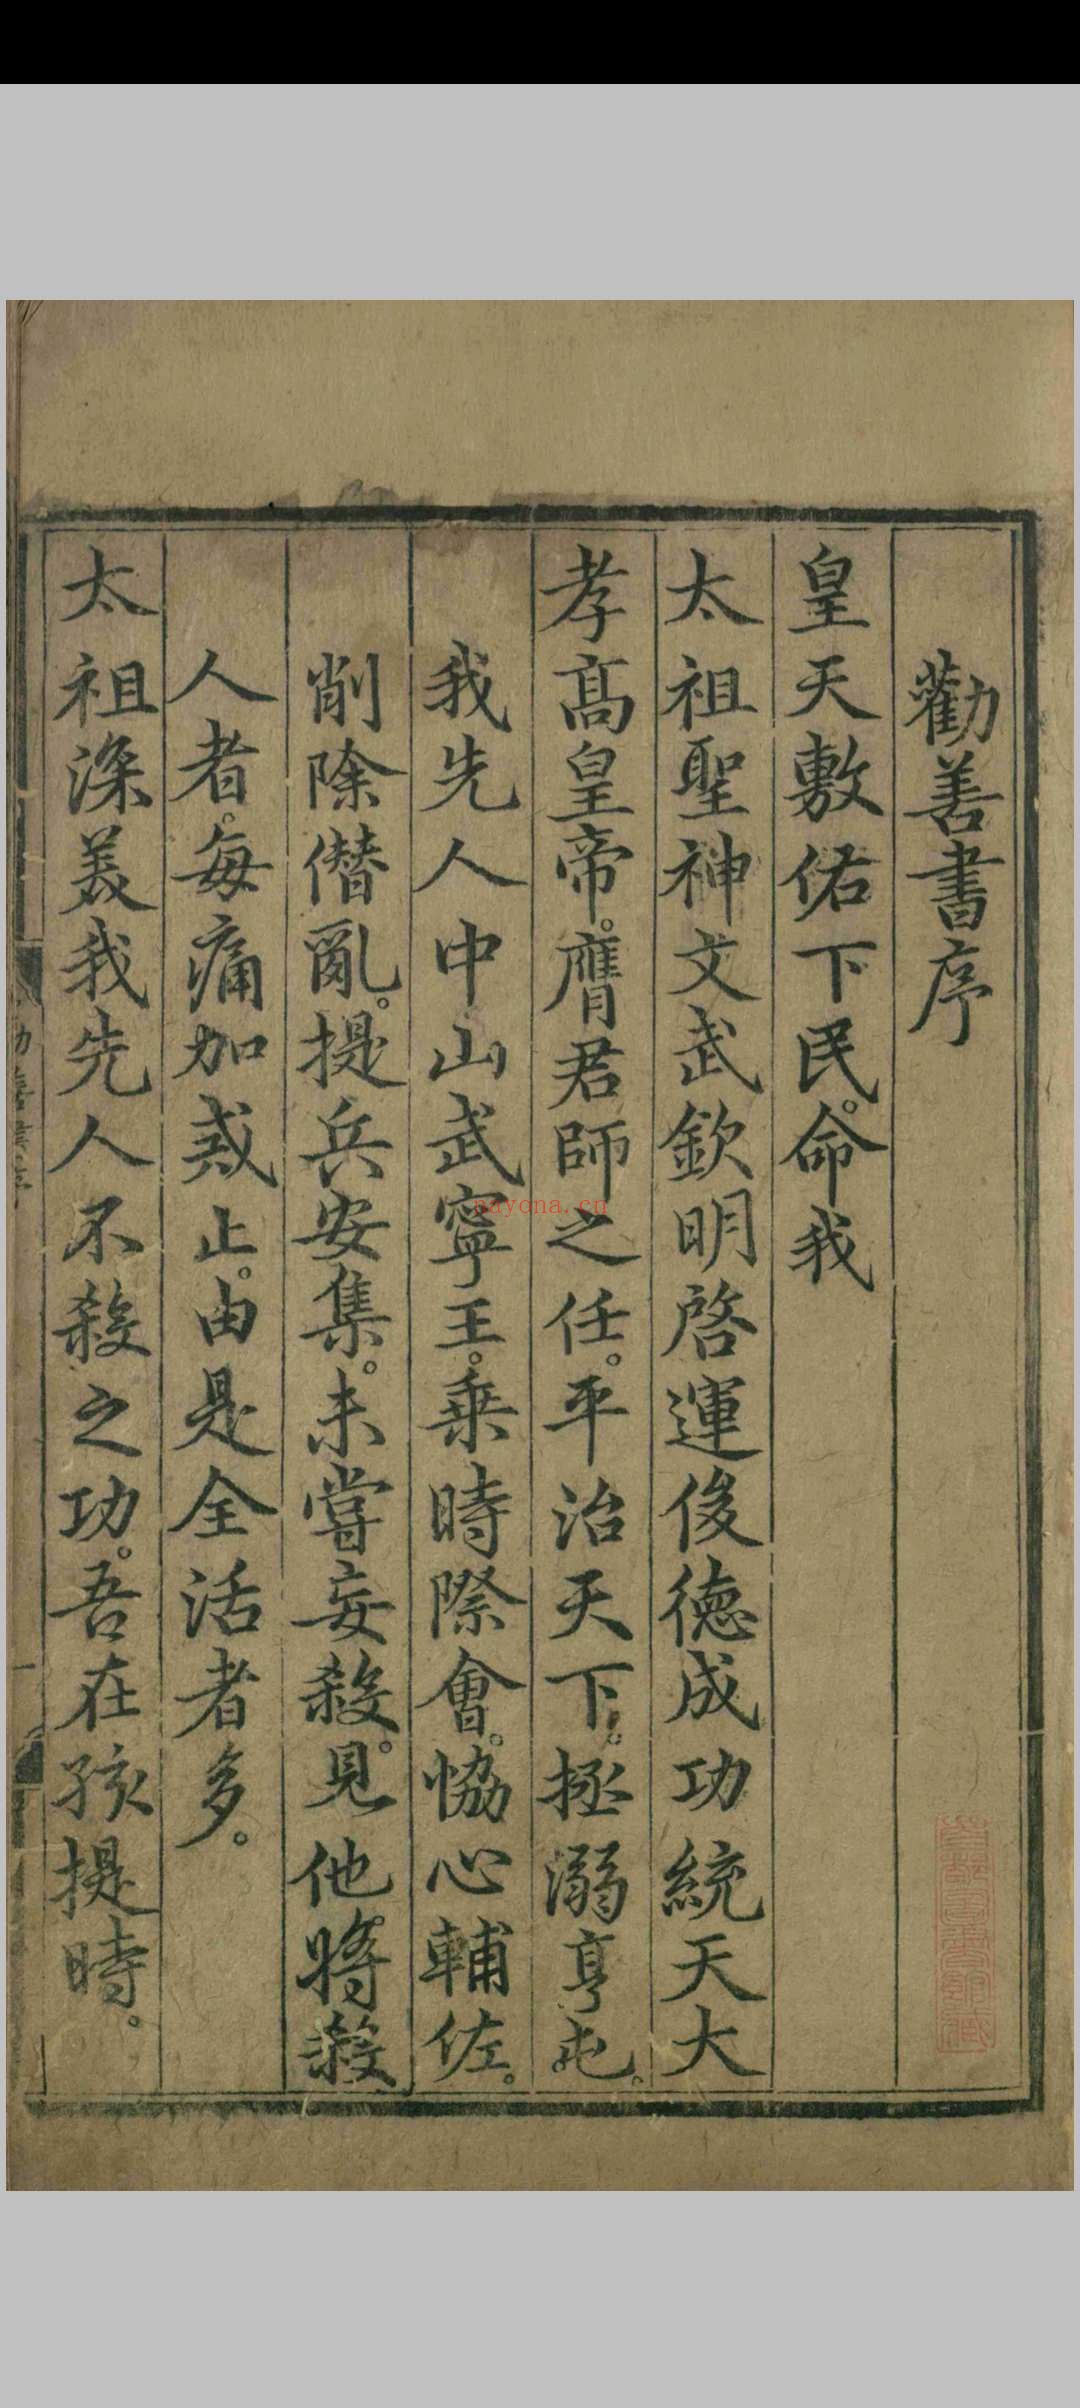 勸善書序
皇天敷佑下民。命我
太祖聖神文武欽明啓運俊德成功統天大
孝高皇帝。膺君師之任。平治天下。拯溺亨屯。
我先人中山武寧王。乗時際會。恊心輔佐。
削除僭亂。提兵安集。未嘗妄殺。見他將濫殺
人者。每痛加戒止。由是全活者多。
太祖深美我先人不殺之功。吾在孩提時。
nayona.cn